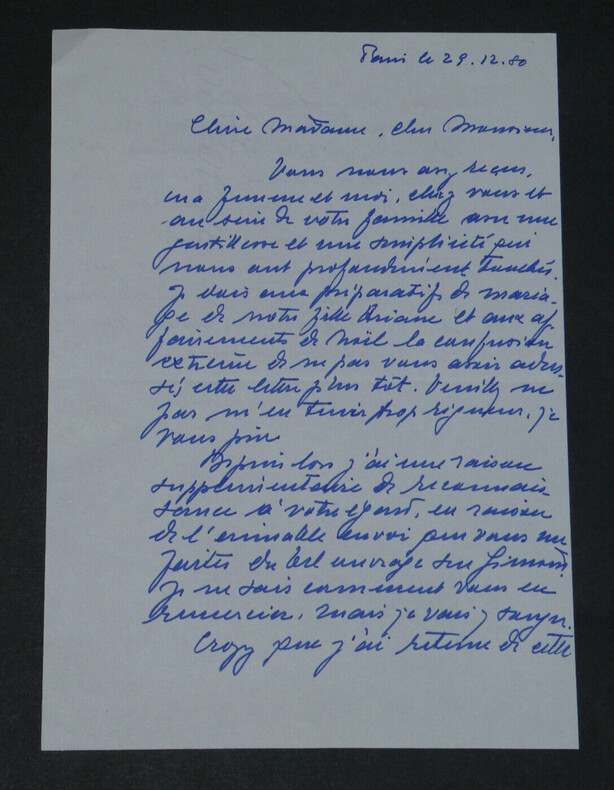 Paris le 29.12.80
Chère Madame, Cher Monsieur,
Vous nous avez reçus,
ma femme et moi, chez vous et
au sein de votre famille avec une
gentillesse et une simplicité qui
nous ont profondément touchés.
Je dois aux préparatifs de maria-
ge de notre fille Ariane et aux af-
fairements de Noël la confusion
extrême de ne pas vous avoir adres-
sé cette lettre plus tôt. Veuillez ne
pas m'en tenir trop rigueur, je
vous prie.
Depuis lors j'ai une raison
supplémentaire de reconnais-
sance à votre égard, en raison
de l'aimable envoi que vous me
faites du bel ouvrage sur
Je ne sais comment vous en
remercier, mais je vais y songer.
Croyez que j'ai retenu de cette